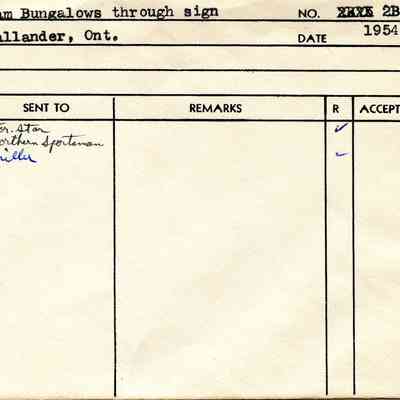 am Bungalows through sign NO. XXXX 2B
allander, Ont. DATE 1954
SENT TO REMARKS R ACCEPT
or. Star ✓
orthern Sportsman
iller ✓